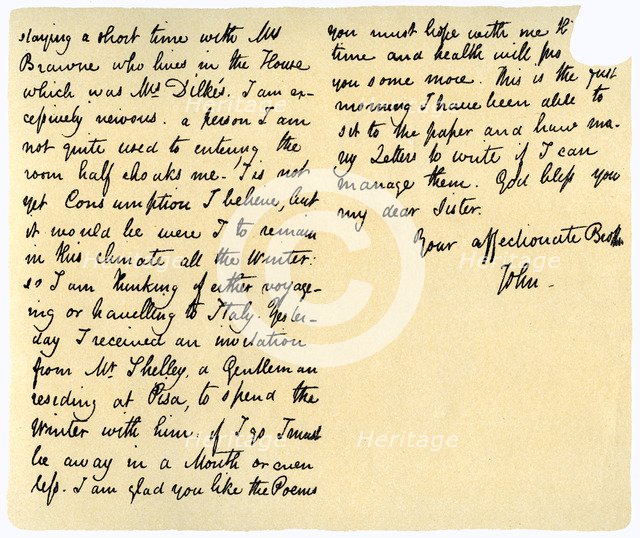 staying a short time with Mrs
Brawne who lives in the House
which was Mrs Dilke's. I am ex-
cessively nervous. a person I am
not quite used to entering the
room half choaks me. T'is not
yet Consumption I believe, but
it would be were I to remain
in this climate all the Winter:
so I am thinking of either voyage-
ing or travelling to Italy. Yester-
day I received an invitation
from Mr Shelley, a Gentleman
residing at Pisa, to spend the
Winter with him. if I go I must
be away in a Month or even
less. I am glad you like the Poems
you must hope with me th
time and health will pro
you some more. This is the first
morning I have been able to
sit to the paper and have ma-
ny Letters to write if I can
manage them. God bless you
my dear Sister.
Your affectionate Brother
John.
Heritage
Heritage
Heritage
Heritage
Heritage
Heritage